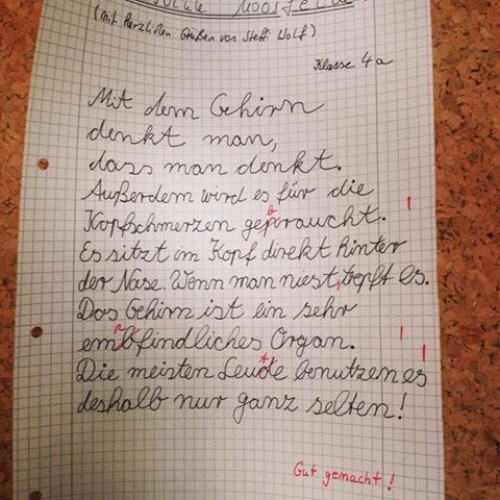 (Mit Herzlichen Grüßen von Steffi Wolf)
Klasse 4a
Mit dem Gehirn
denkt man,
dass man denkt.
Außerdem wird es für die
b
Kopfschmerzen gepraucht.
Es sitzt im Kopf direkt hinter
der Nase. Wenn man niest, tropft es.
Das Gehirn ist ein sehr
p
embfindliches Organ.
t
Die meisten Leude benutzen es
deshalb nur ganz selten!
Gut gemacht!